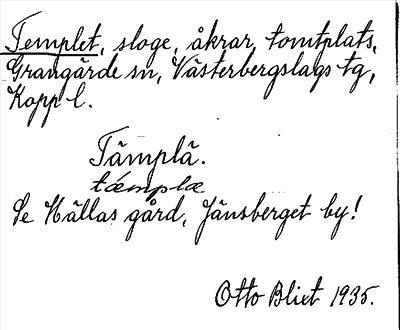 Templet, sloge, åkrar, tomtplats,
Grangärde sn, Västerbergslags tg,
Kopp l.
Tämplä.
tæmplæ
Se Hällas gård, Jänsberget by!
Otto Blixt 1935.